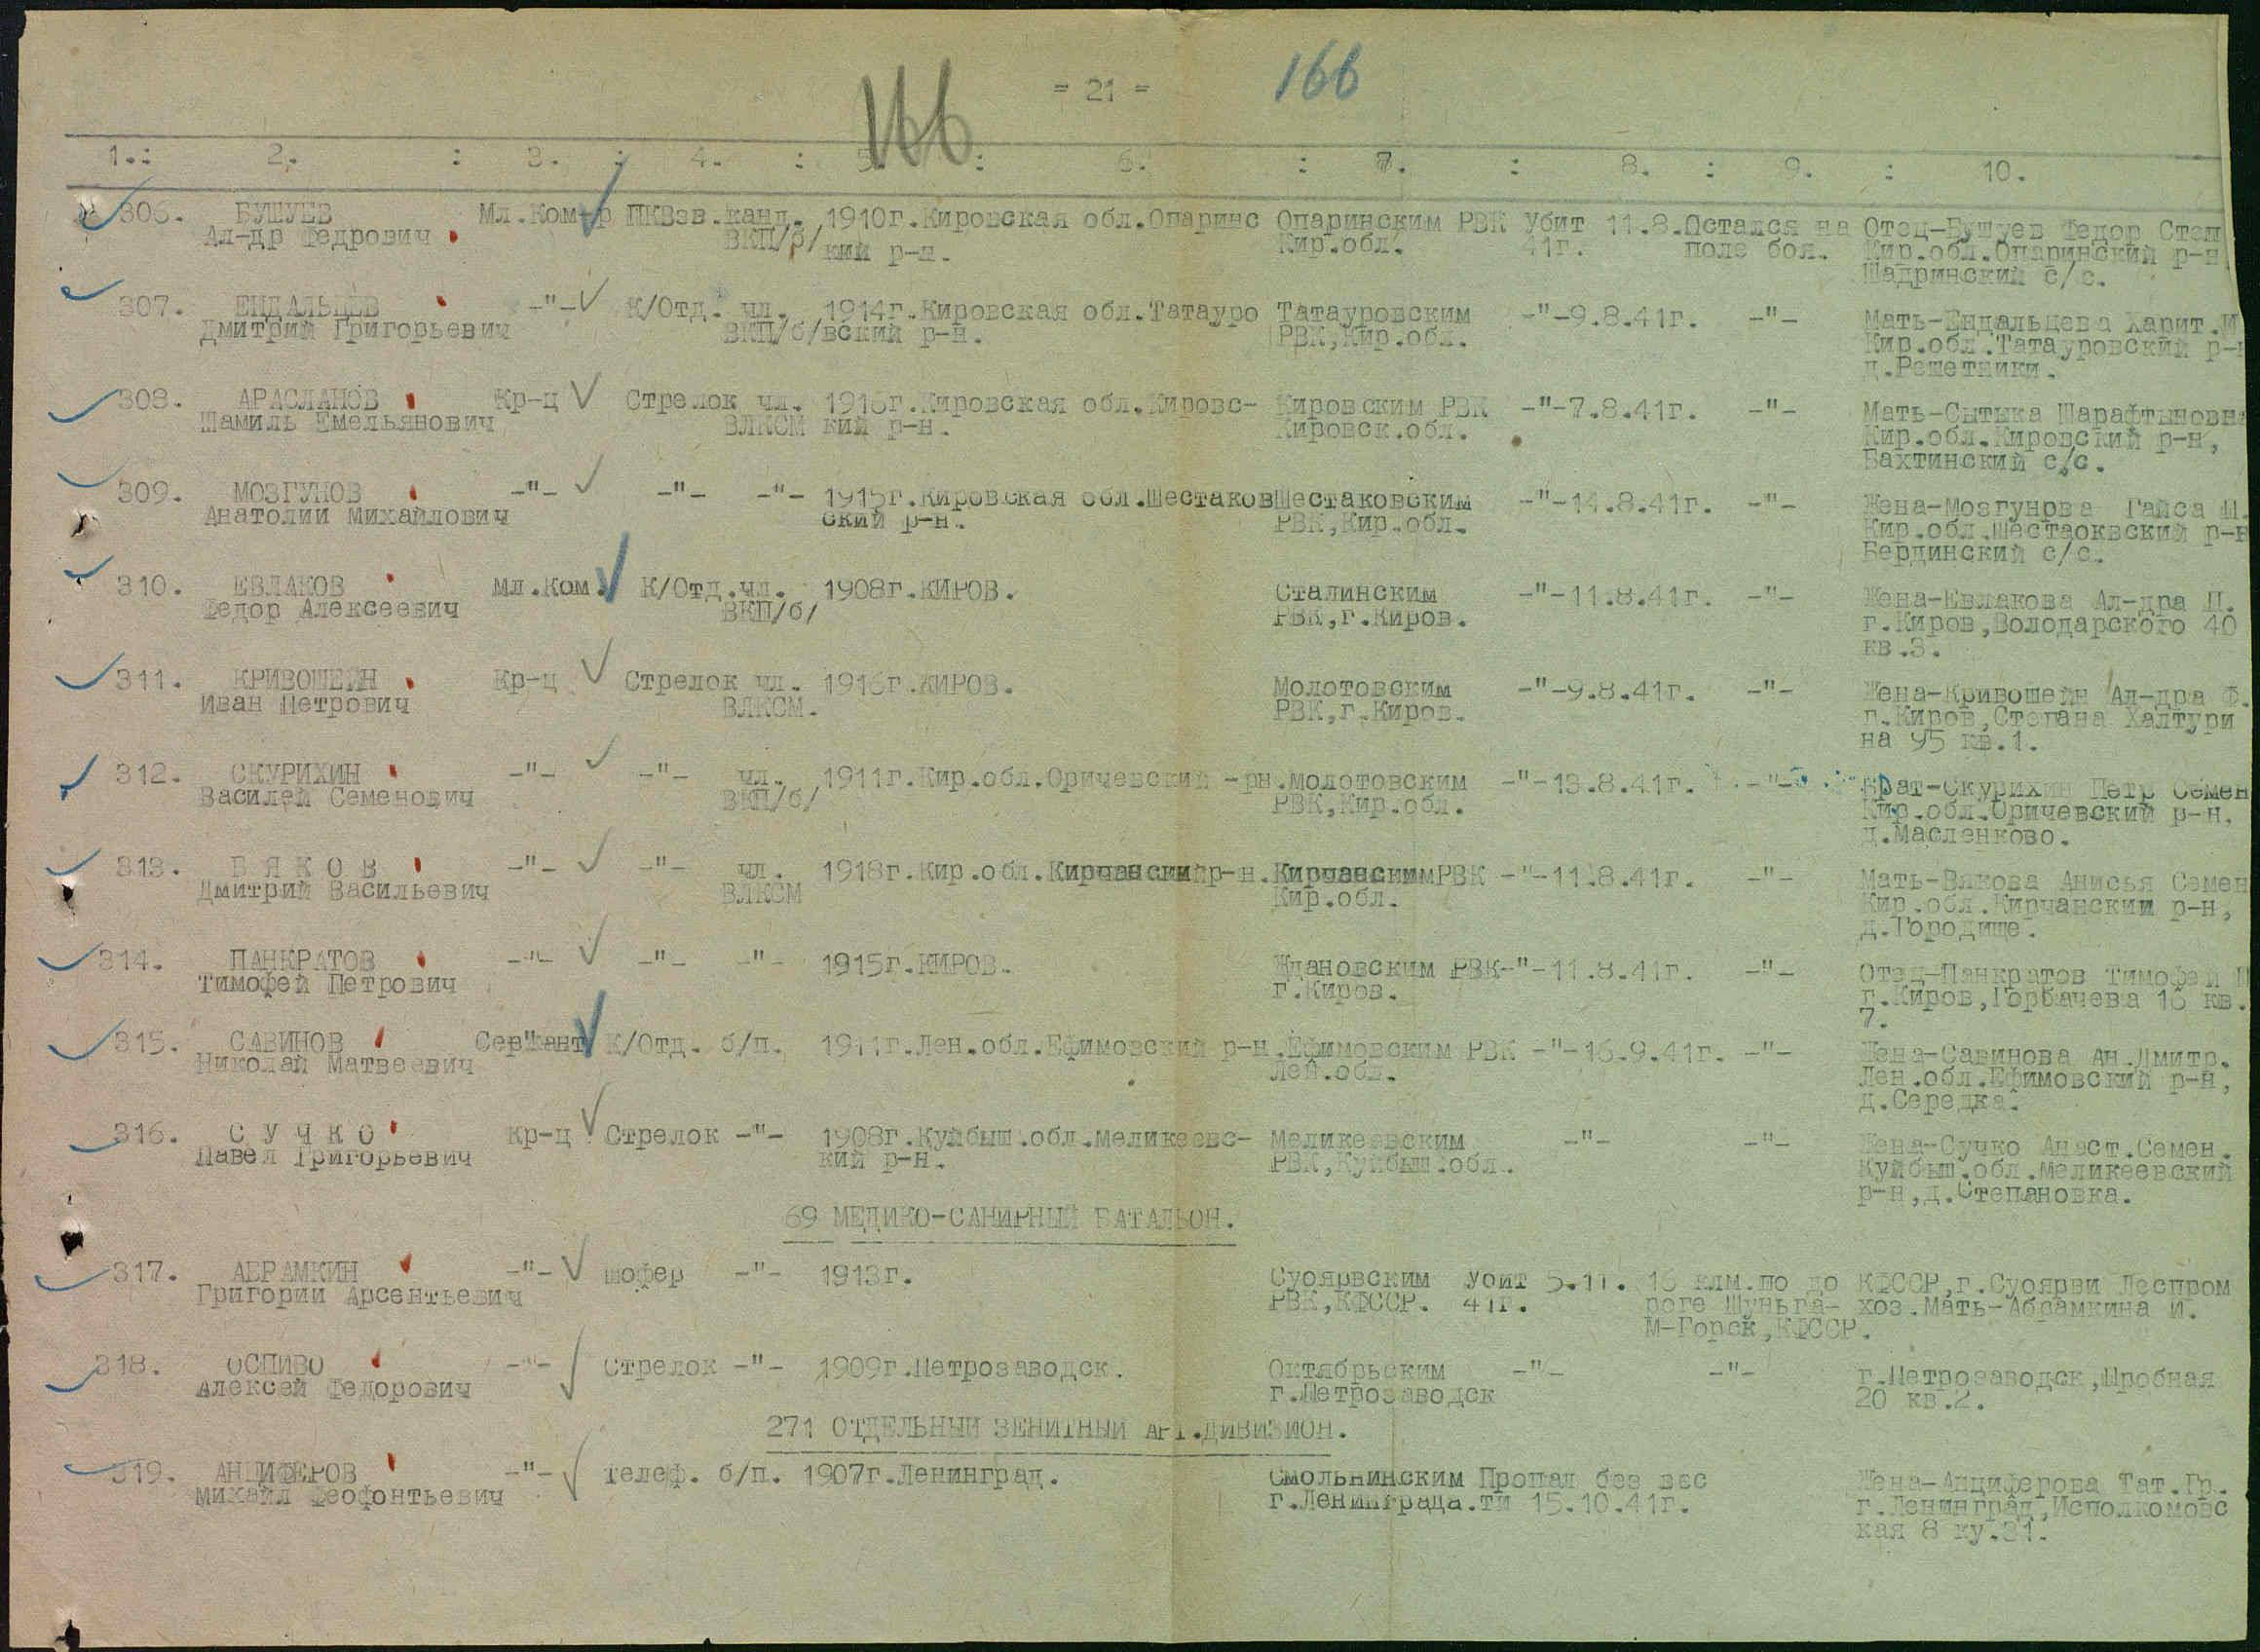 = 21 =
166
166
1.: 2. : 3. : 4. : 5. : 6. : 7. : 8. : 9. : 10.
306. БУШУЕВ Мл.Ком-р ПКВзв.канд. 1910г.Кировская обл.Опаринс Опаринским РВК Убит 11.8. Остался на Отец-Бушуев Федор Степ
Ал-др Федрович ВКП/б/ кий р-н. Кир.обл. 41г. поле боя. Кир.обл.Опаринский р-н
Шадринский с/с.
307. ЕНДАЛЬЦЕВ -"- К/Отд. чл. 1914г.Кировская обл.Татауро Татауровским -"-9.8.41г. -"- Мать-Ендальцева Харит.И
Дмитрий Григорьевич ВКП/б/ вский р-н. РВК,Кир.обл. Кир.обл.Татауровский р-н
д.Решетники.
308. АРАСЛАНОВ Кр-ц Стрелок чл. 1916г.Кировская обл.Кировс- Кировским РВК -"-7.8.41г. -"- Мать-Сытыка Шарафтыновна
Шамиль Емельянович ВЛКСМ кий р-н. Кировск.обл. Кир.обл.Кировский р-н,
Бахтинский с/с.
309. МОЗГУНОВ -"- -"- -"- 1915г.Кировская обл.Шестаков Шестаковским -"-14.8.41г. -"- Жена-Мозгунова Гайса М.
Анатолий Михайлович ский р-н. РВК,Кир.обл. Кир.обл.Шестаоквский р-н
Бердинский с/с.
310. ЕВЛАКОВ Мл.Ком. К/Отд.чл. 1908г.КИРОВ. Сталинским -"-11.8.41г. -"- Жена-Евлакова Ал-дра П.
Федор Алексеевич ВКП/б/ РВК,г.Киров. г.Киров,Володарского 40
кв.3.
311. КРИВОШЕИН Кр-ц Стрелок чл. 1916г.КИРОВ. Молотовским -"-9.8.41г. -"- Жена-Кривошейн Ал-дра Ф.
Иван Петрович ВЛКСМ. РВК,г.Киров. г.Киров,Степана Халтури
на 95 кв.1.
312. СКУРИХИН -"- -"- чл. 1911г.Кир.обл.Оричевский -рн. Молотовским -"-13.8.41г. -"- Брат-Скурихин Петр Семен
Василей Семенович ВКП/б/ РВК,Кир.обл. Кир.обл.Оричевский р-н,
д.Масленково.
313. В Я К О В -"- -"- чл. 1918г.Кир.обл.Кирчанскийр-н. КирчанскимРВК -"-11.8.41г. -"- Мать-Вякова Анисья Семен
Дмитрий Васильевич ВЛКСМ Кир.обл. Кир.обл.Кирчанский р-н,
д.Городище.
314. ПАНКРАТОВ -"- -"- -"- 1915г.КИРОВ. Ждановским РВК-"-11.8.41г. -"- Отец-Панкратов Тимофей П
Тимофей Петрович г.Киров. г.Киров,Горбачева 16 кв.
7.
315. САВИНОВ Сержант К/Отд. б/п. 1911г.Лен.обл.Ефимовский р-н. Ефимовским РВК -"-16.9.41г. -"- Жена-Савинова Ан.Дмитр.
Николай Матвеевич Лен.обл. Лен.обл.Ефимовский р-н,
д.Середка.
316. С У Ч К О Кр-ц Стрелок -"- 1908г.Куйбыш.обл.Меликеевс- Меликеевским -"- -"- Жена-Сучко Анаст.Семен.
Павел Григорьевич кий р-н. РВК,Куйбыш.обл. Куйбыш.обл.Меликеевский
р-н,д.Степановка.
69 МЕДИКО-САНИРНЫЙ БАТАЛЬОН.
317. АБРАМКИН -"- шофер -"- 1913г. Суоярвским Убит 5.11. 16 клм.по до КФССР,г.Суоярви Леспром
Григории Арсентьевич РВК,КФССР. 41г. роге Шуньга- хоз.Мать-Абрамкина И.
М-Горск,КФССР.
318. ОСПИВО -"- Стрелок -"- 1909г.Петрозаводск. Октябрьским -"- -"- г.Петрозаводск,Пробная
Алексей Федорович г.Петрозаводск 20 кв.2.
271 ОТДЕЛЬНЫЙ ЗЕНИТНЫЙ АРТ.ДИВИЗИОН.
319. АНЦИФЕРОВ -"- телеф. б/п. 1907г.Ленинград. Смольнинским Пропал без вес Жена-Анциферова Тат.Гр.
Михайл Феофонтьевич г.Ленинграда.ти 15.10.41г. г.Ленинград,Исполкомовс
кая 8 ку.31.